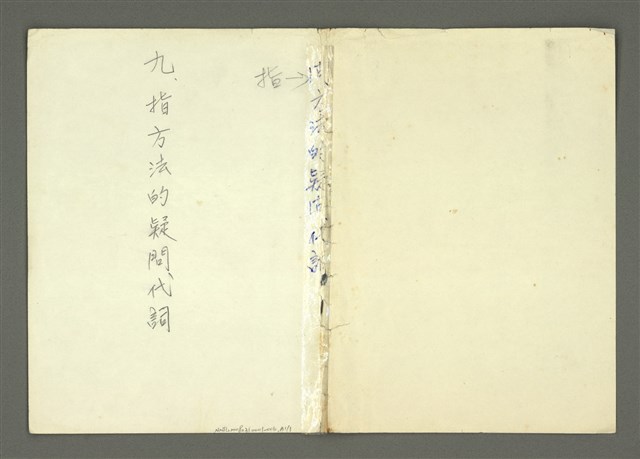 九、指方法的疑問代詞
指→
方法的疑問代詞